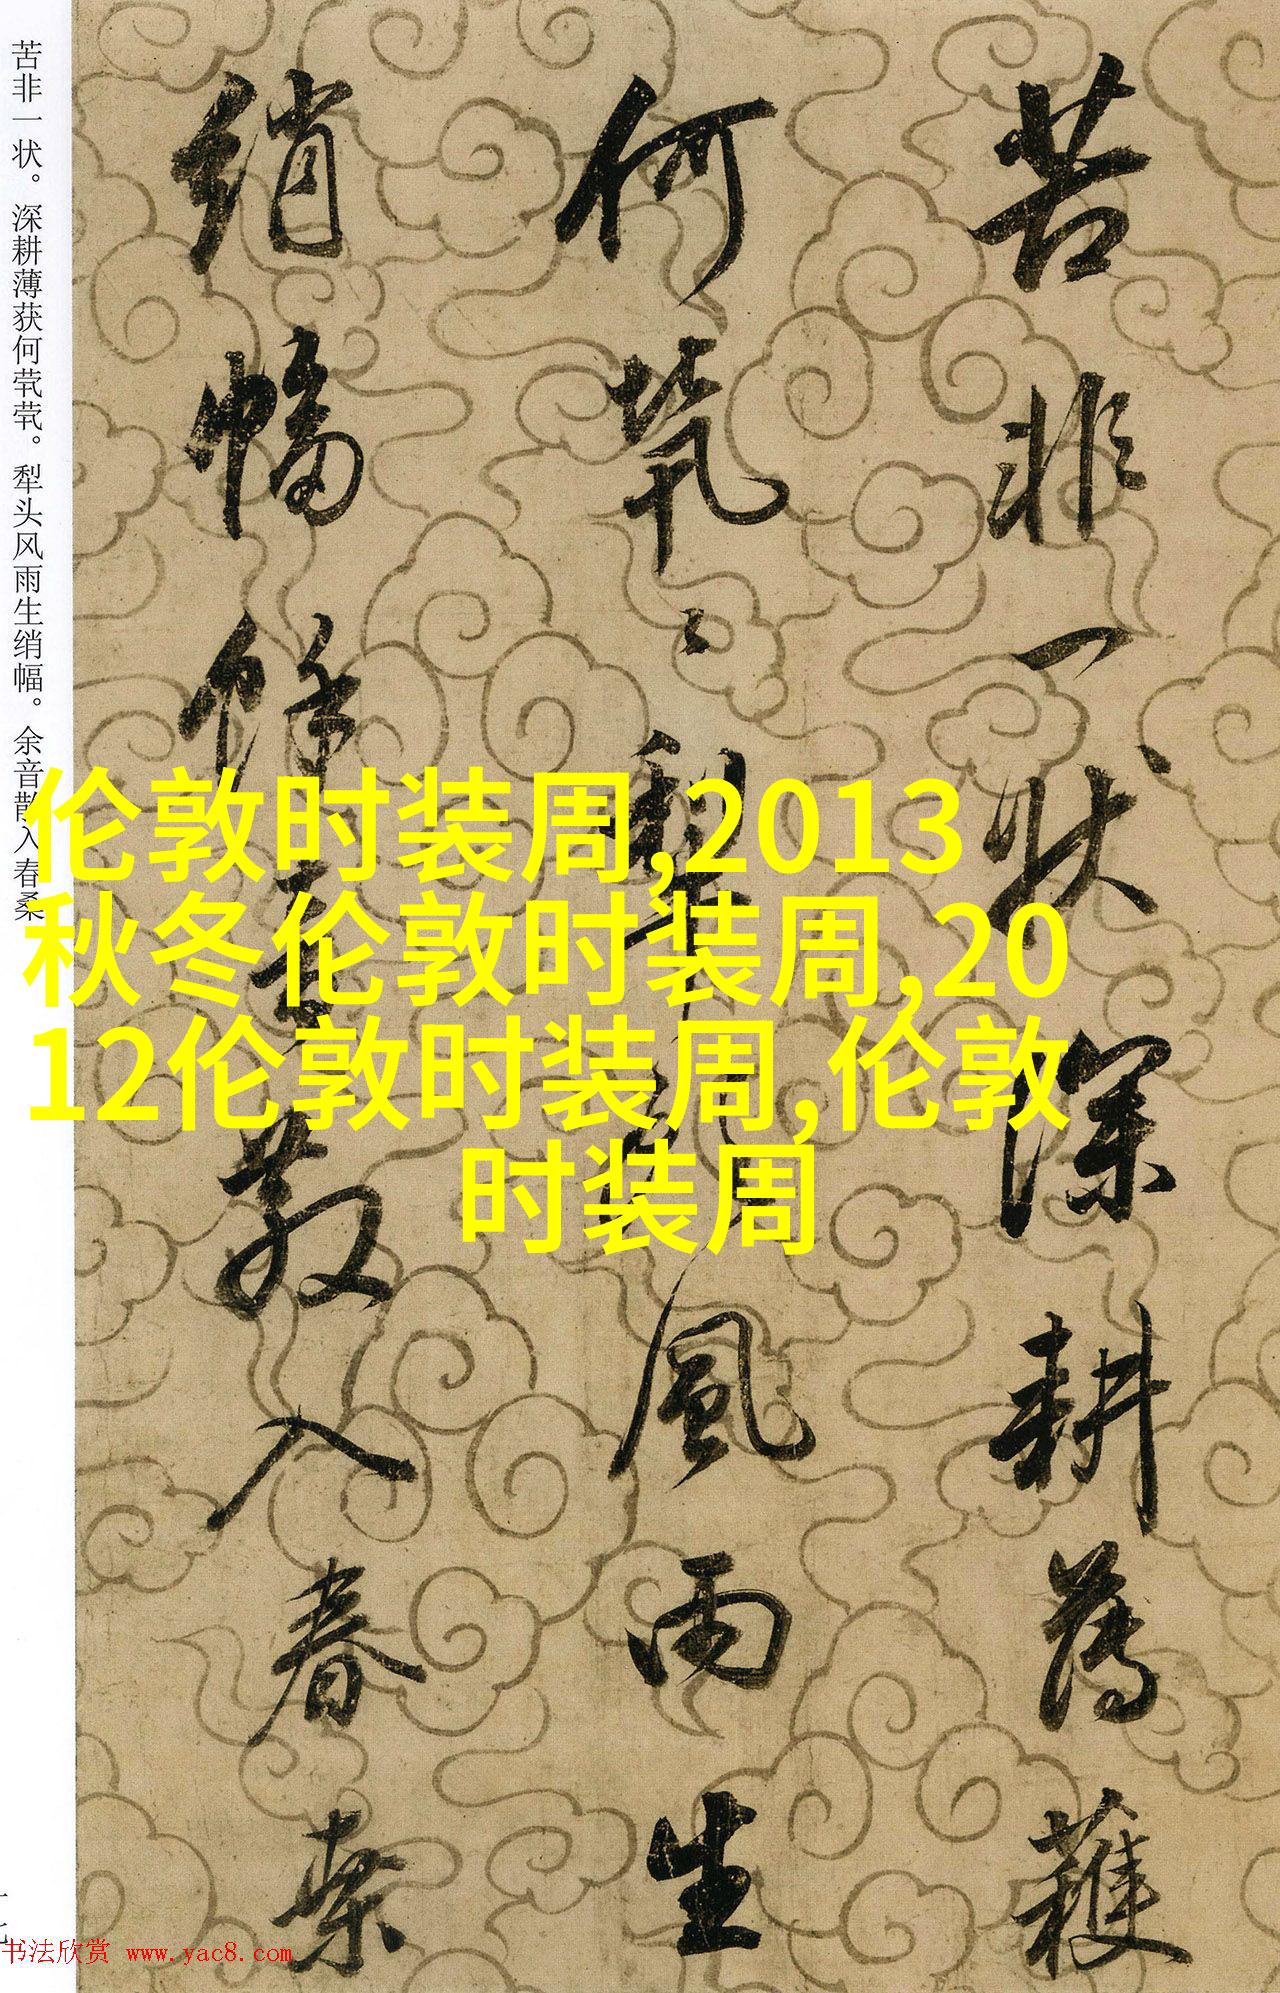 苦非一状。深耕薄获何茕茕。犁头风雨生绡幅。余音散入春桑
苦非一状深耕薄穫
何茕〻犁頭風雨生
绡幅餘音散入春桑
伦敦时装周,2013
秋冬伦敦时装周,20
12伦敦时装周,伦敦
时装周
书法欣赏 www.yac8.com